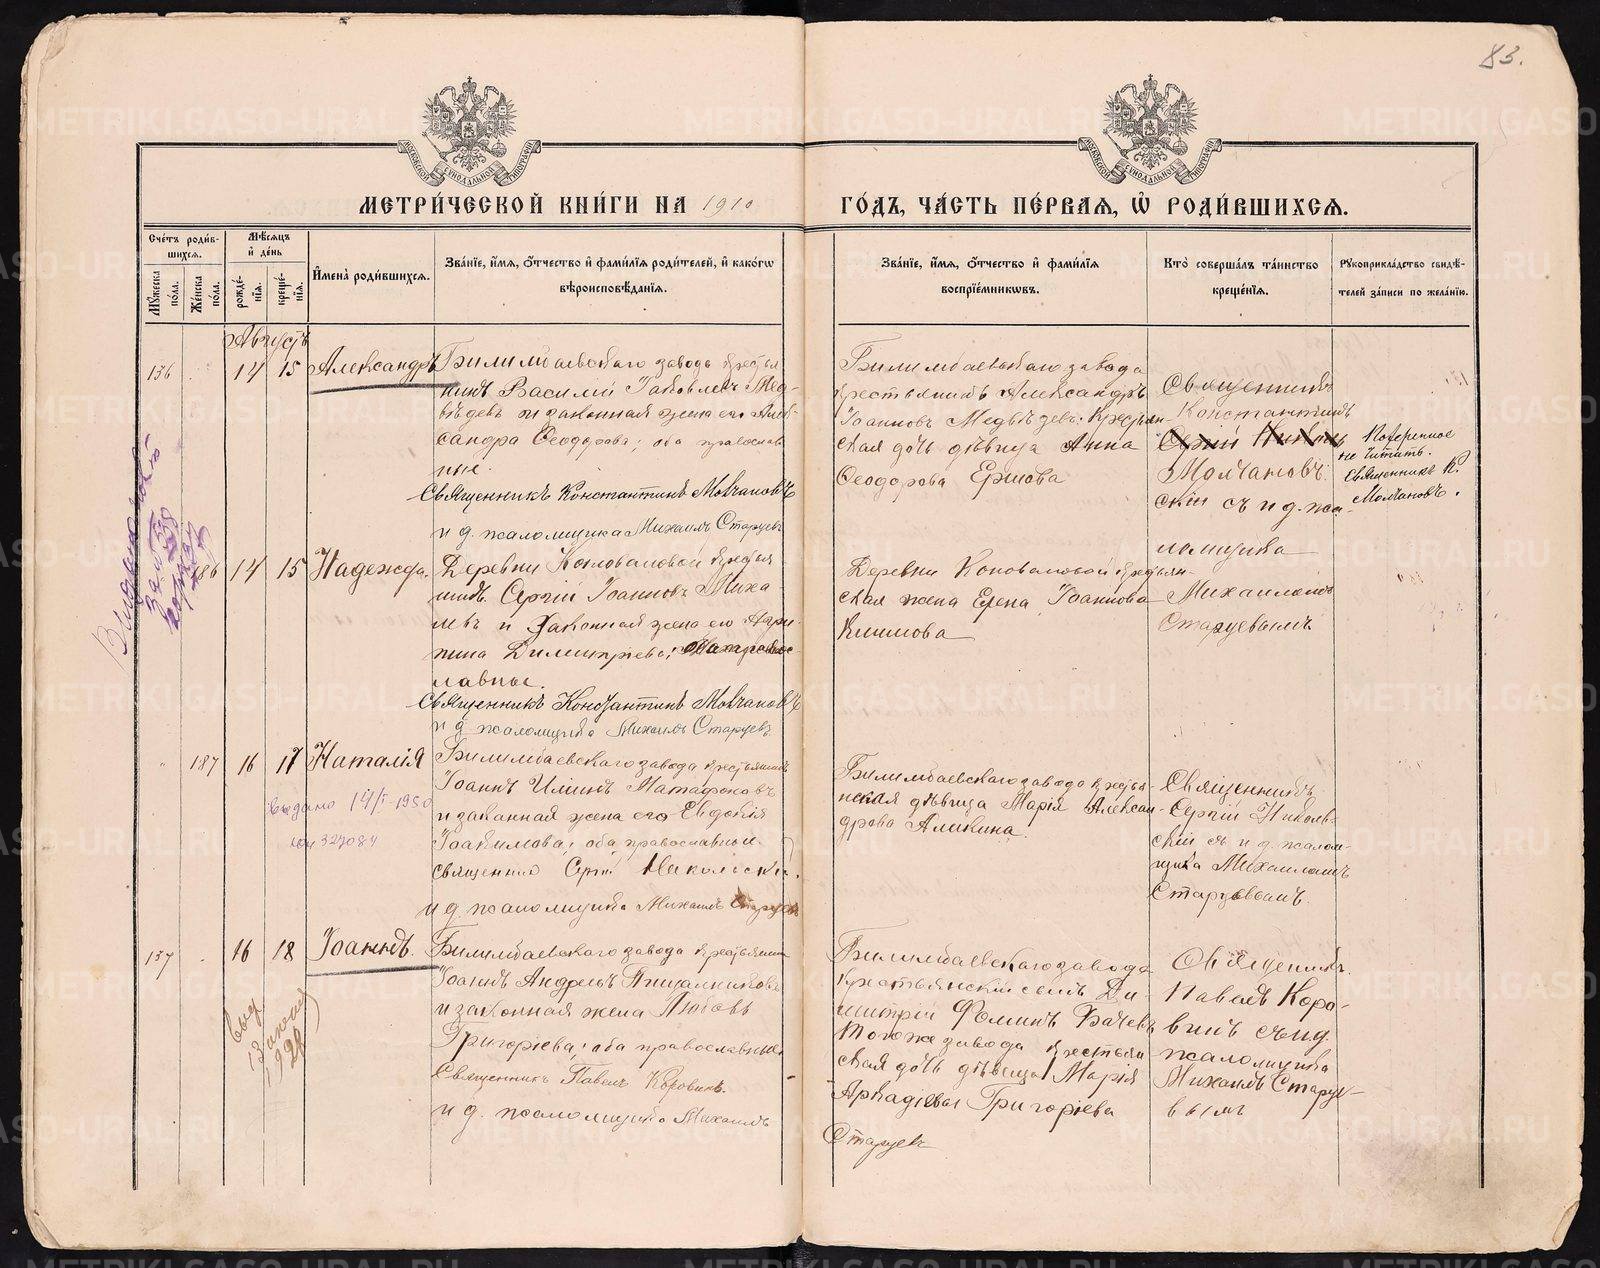 83.
МЕТРИ́ЧЕСКОЙ КНИ́ГИ НА 1910
ГО́ДЪ, ЧА́СТЬ ПЕ́РВАЯ, Ѡ҆ РОДИ́ВШИХСЯ.
Сче́тъ роди́в-
шихся.
Мѣ́сяцъ
и҆ де́нь
Мꙋ́жеска по́ла.
Же́нска по́ла.
рожде́-
нїя.
креще́-
нїя.
И҆мена̀ роди́вшихся.
Зва́нїе, и҆́мя, ѻ҆́тчество и҆ фами́лїя роди́телей, и҆ како́гѡ
вѣроисповѣ́данїя.
Зва́нїе, и҆́мя, ѻ҆́тчество и҆ фами́лїя
воспрїе́мникѡвъ.
Кто̀ соверша́лъ та́инство
креще́нїя.
Рꙋкоприкла́дство свидѣ́-
телей за́писи по жела́нїю.
Августъ
136 14 15 Александръ
Билимбаевскаго завода крестья
нинъ Василій Іаковлевъ Мед-
вѣдевъ и законная жена его Алек-
сандра Ѳеодорова; оба православ
ные.
Священникъ Константинъ Молчановъ
и д. псаломщика Михаилъ Старцевъ
Билимбаевскаго завода
крестьянинъ Александръ
Іоанновъ Медвѣдевъ. Крестьян-
ская дочь дѣвица Анна
Ѳеодорова Ершова
Священникъ
Константинъ
Сергій
Молчанов
скій съ и д. пса-
ломщика
Михаиломъ
Старцевымъ
Поверенное
не читать.
Священникъ К.
Молчановъ.
186 14 15 Надежда.
Деревни Коноваловой крестья
нинъ Сергій Іоанновъ Миха
левъ и законная жена его Агри-
пина Димитріева;
лавные.
Священникъ Константинъ Молчановъ
и д псаломщика Михаилъ Старцевъ
Деревни Коноваловой крестьян-
ская жена Елена Іоаннова
187 16 17 Наталія
выдано 14/I-1950
327084
Билимбаевскаго завода крестьянинъ
Іоаннъ
и законная жена его Евдокія
Іоакимова; оба православные.
священник Сергій Никольскій.
и д псаломщика Михаилъ Старцевъ
Билимбаевскаго завода крестья-
нская дѣвица Марія Алексан
дрова Аликина.
Священникъ
Сергій Николь-
скій съ и д. псалом-
щика Михаиломъ
Старцевымъ.
137 16 18 Іоаннъ.
выд
1924
Билимбаевскаго завода крестьянинъ
Іоаннъ Андреевъ Пищальниковъ
и законная жена Любовь
Григоріева; оба православные
Священникъ Павелъ Коровинъ.
и д. псаломщика Михаилъ
Старцевъ
Билимбаевскаго завода
Крестьянскій сынъ Ди-
митрій Ѳоминъ
того же завода крестьян
ская дочь дѣвица Марія
Аркадіева Григоріева
Священникъ
Павелъ Коро-
винъ съ и д.
псаломщика
Михаилъ Старце-
вымъ